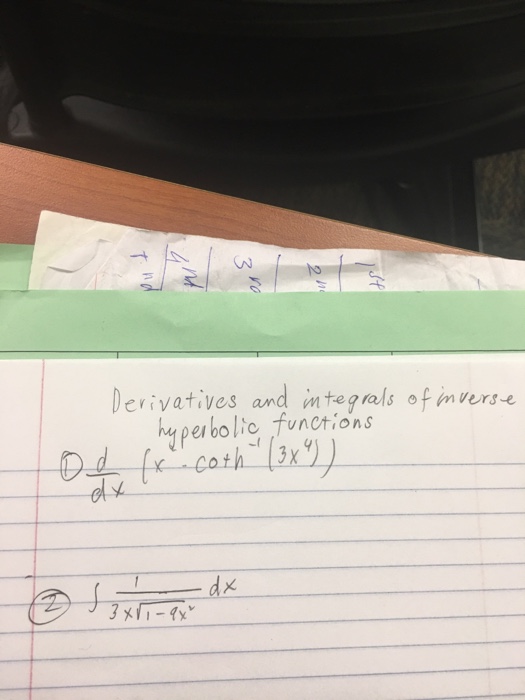 1st
2n
3rd
Derivatives and integrals of inverse
hyperbolic functions
① d/dx (x - coth⁻¹(3x⁴))
② ∫ 1/(3x√1-9x²) dx